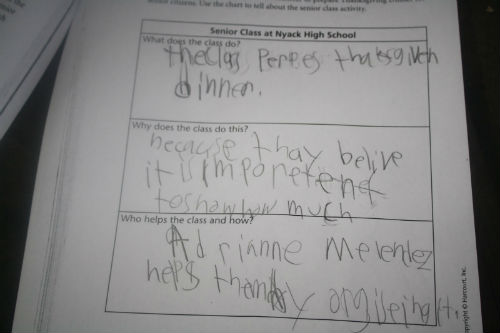 senior citizens. Use the chart to tell about the senior class activity.
Senior Class at Nyack High School
What does the class do?
theclass Perpes thaksgiveh
dinner.
Why does the class do this?
because thay belive
it is imponetent
toshawhaw much
Who helps the class and how?
Adrianne Melendez
helps themby orgileing it.
Copyright © Harcourt, Inc.